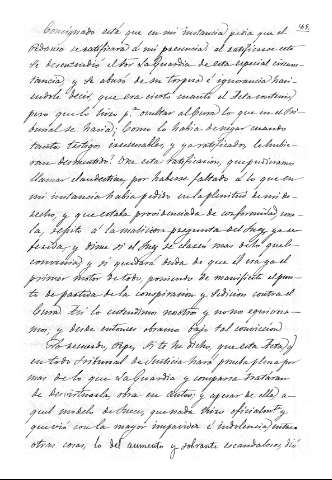 Consignado está que en mi instancia pedia que el
Pedáneo se ratificára á mi presencia: al ratificarse este
se desentendió el Sor La Guardia de esta especial circuns-
tancia, y se abusó de su torpeza é ignorancia hacien-
dole decir, que era cierto cuanto el Acta contenia,
pero que lo hizo pa. ocultar al Cura lo que en el Tri-
bunal se hacia; Como lo habia de negar cuando
tantos testigos irrecusables, y ya ratificados le hubie-
ran desmentido! Una esta ratificacion, que pudieramos
llamar clandestina, por haberse faltado á lo que en
mi instancia habia pedido en la plenitud de mi de-
recho, y que estaba providenciada de conformidad con
la, repito á la maliciosa pregunta del Juez ya re-
ferida, y dime si el Juez se clareó mas de lo que le
convenia; y si quedará duda de que él era ya el
primer motor de todo, poniendo de manifiesto el pun-
to de partida de la conspiracion y sedicion contra el
Cura. Así lo entendimos nosotros y no nos equivoca-
mos, y desde entonces obramos bajo tal conviccion.
Yo recuerdo, Pepe, si te he dicho, que esta Acta, q.
en todo Tribunal de Justicia hará prueba plena por
mas de lo que La Guardia y comparsa trataron
de desvirtuarla, obra en Autos; y apesar de ella, a-
quel modelo de Jueces, que nada hizo oficialmte. y
que vió con la mayor impavidez é indolencia, entre
otras cosas, lo del aumento y sobrante escandaloso, dió